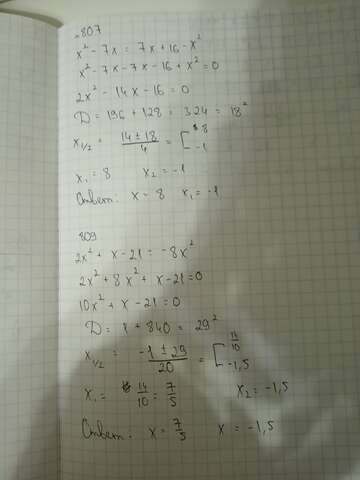 807
x² - 7x = 7x + 16 - x²
x² - 7x - 7x - 16 + x² = 0
2x² - 14x - 16 = 0
D = 196 + 128 = 324 = 18²
x₁/₂ = (14 ± 18)/4 = [ 8
-1
x₁ = 8 x₂ = -1
Ответ: x = 8 x₁ = -1
809
2x² + x - 21 = -8x²
2x² + 8x² + x - 21 = 0
10x² + x - 21 = 0
D = 1 + 840 = 29²
x₁/₂ = (-1 ± 29)/20 = [ 14/10
-1,5
x₁ = 14/10 = 7/5 x₂ = -1,5
Ответ: x = 7/5 x = -1,5